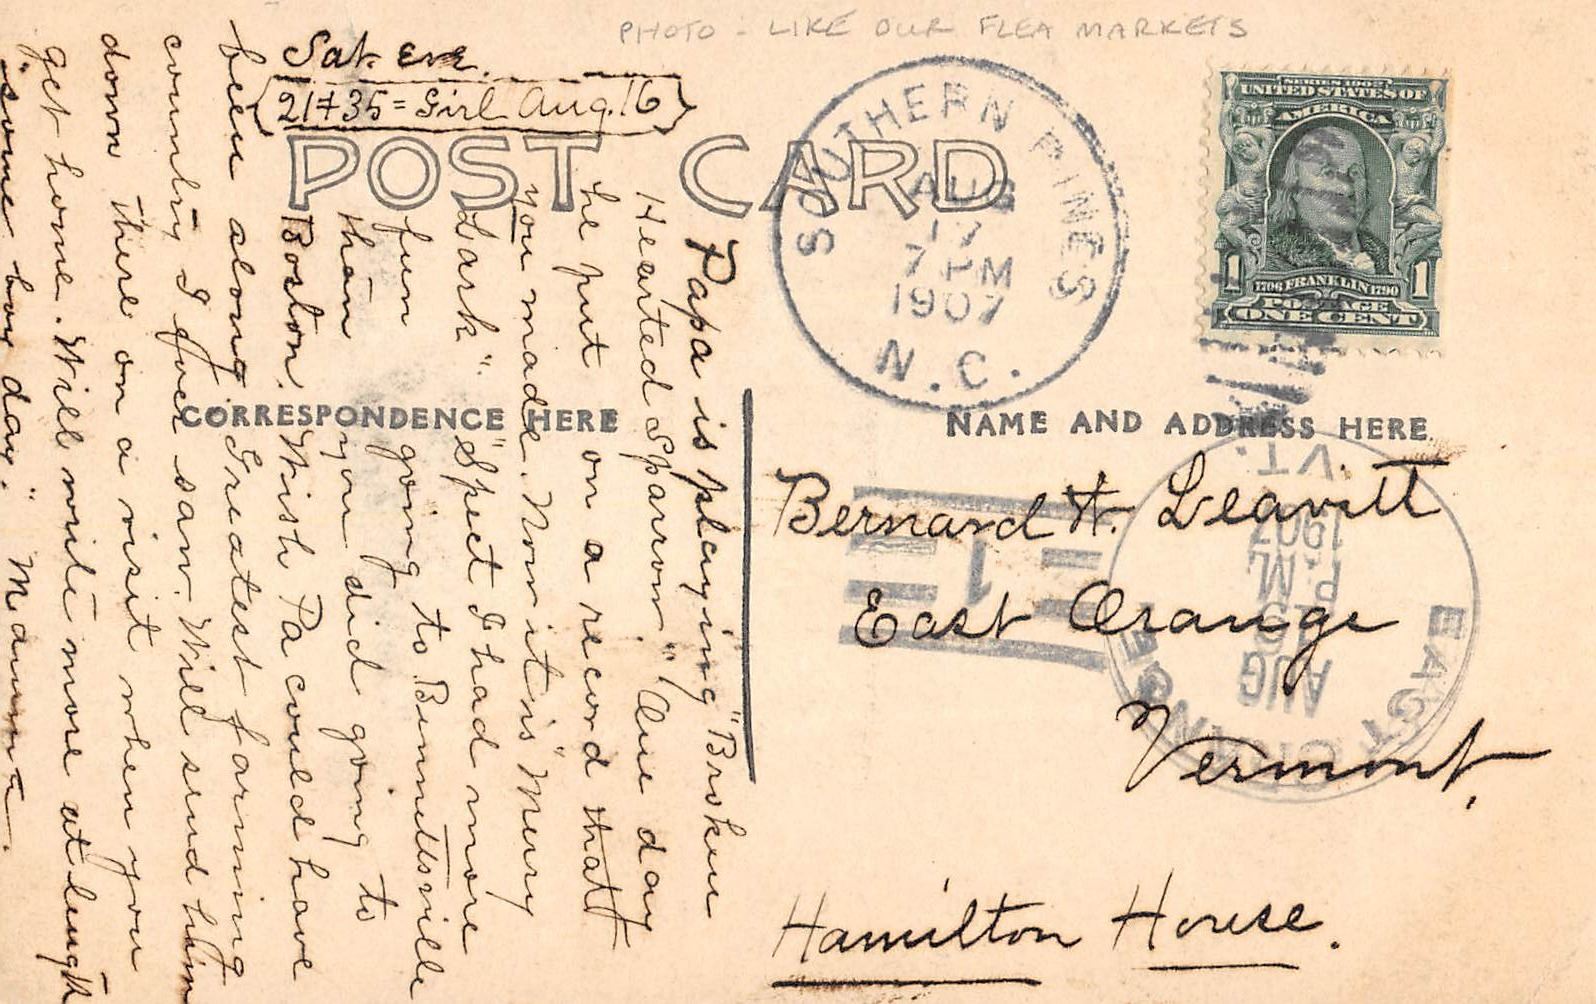 PHOTO - LIKE OUR FLEA MARKETS
Sat. Eve.
21+35 = Girl Aug. 16
POST CARD
SOUTHERN PINES
AUG
17
7 PM
1907
N.C.
SERIES 1902
UNITED STATES OF
AMERICA
1706 FRANKLIN 1790
1 1
POSTAGE
ONE CENT
CORRESPONDENCE HERE
NAME AND ADDRESS HERE.
Papa is playing "Broken
Hearted Sparrow." One day
he put on a record that
you made. Now it is "Merry
Lark". "Spect I had more
fun going to Bennettsville
than you did going to
Boston. Wish Pa could have
been along. Greatest farming
country I ever saw. Will send him
down there on a visit when you
get home. Will write more at length
"some boy day." Mamma.
Bernard H. Leavitt
East Orange
Vermont.
Hamilton House.
EAST ORANGE
AUG
P.M.
1907
VT.
1